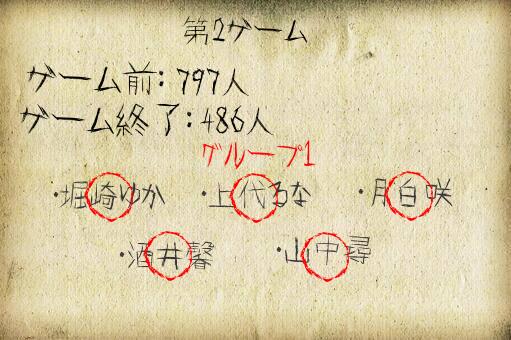 第2ゲーム
ゲーム前：797人
ゲーム終了：486人
グループ1
・堀崎ゆか ・上代るな ・月白咲
・酒井馨 ・山中尋